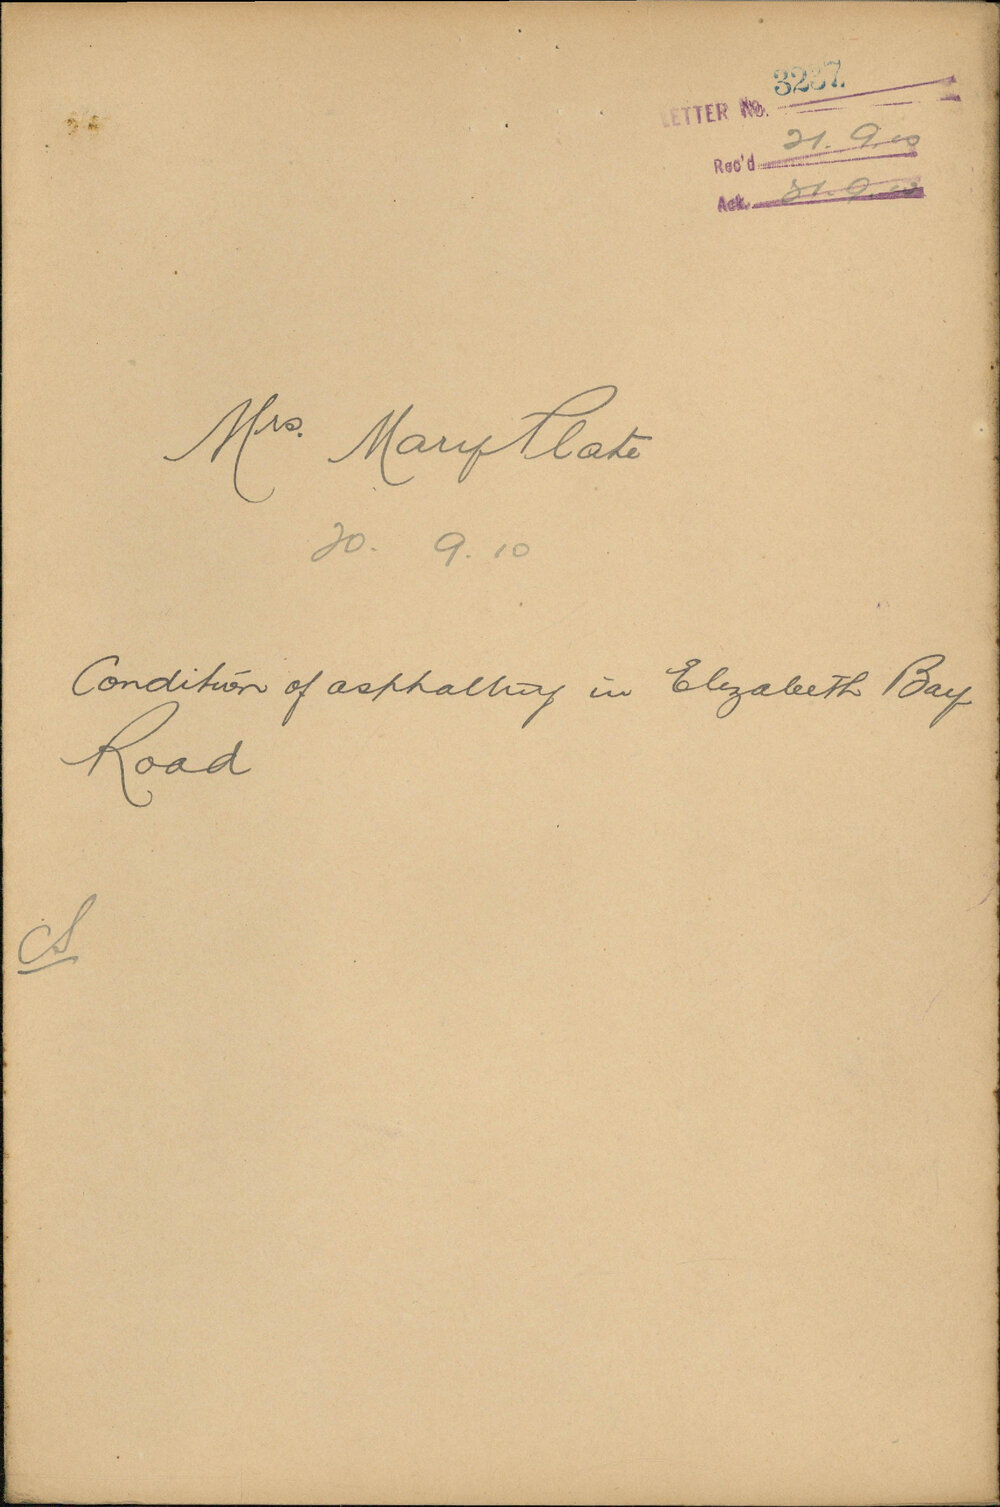 3237
LETTER No.
Rec'd 21. 9. 10
Ack. 21. 9. 10
Mrs. Mary Plate
20. 9. 10
Condition of asphalting in Elizabeth Bay
Road
CS